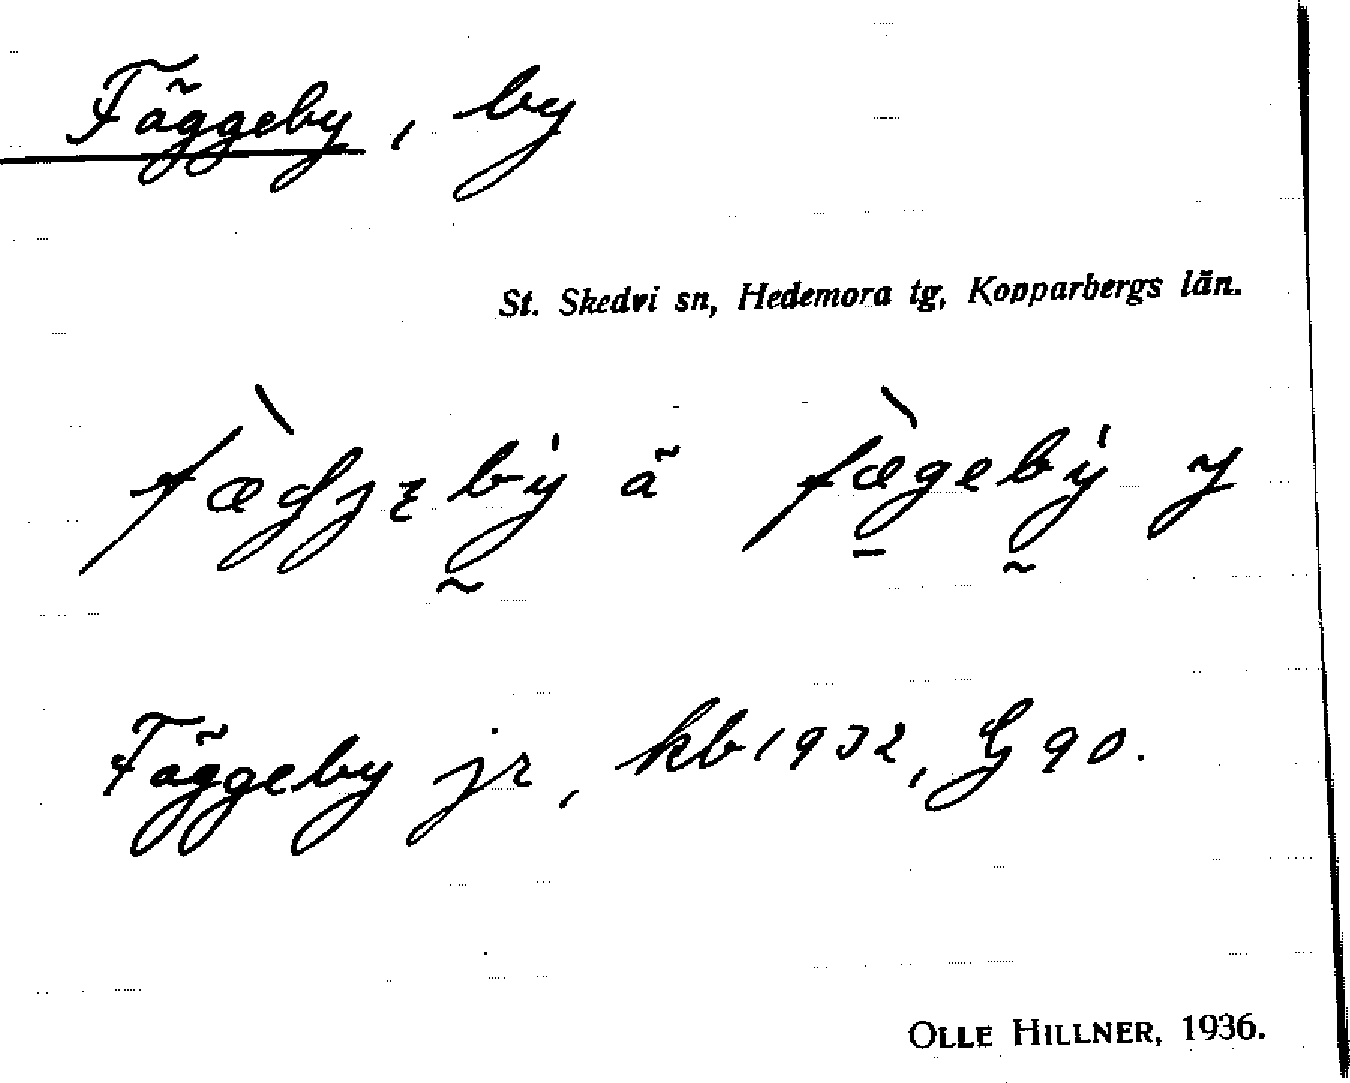 Fäggeby, by
St. Skedvi sn, Hedemora tg, Kopparbergs län.
ä y
Fäggeby jr, kb 1932, G 90.
OLLE HILLNER, 1936.